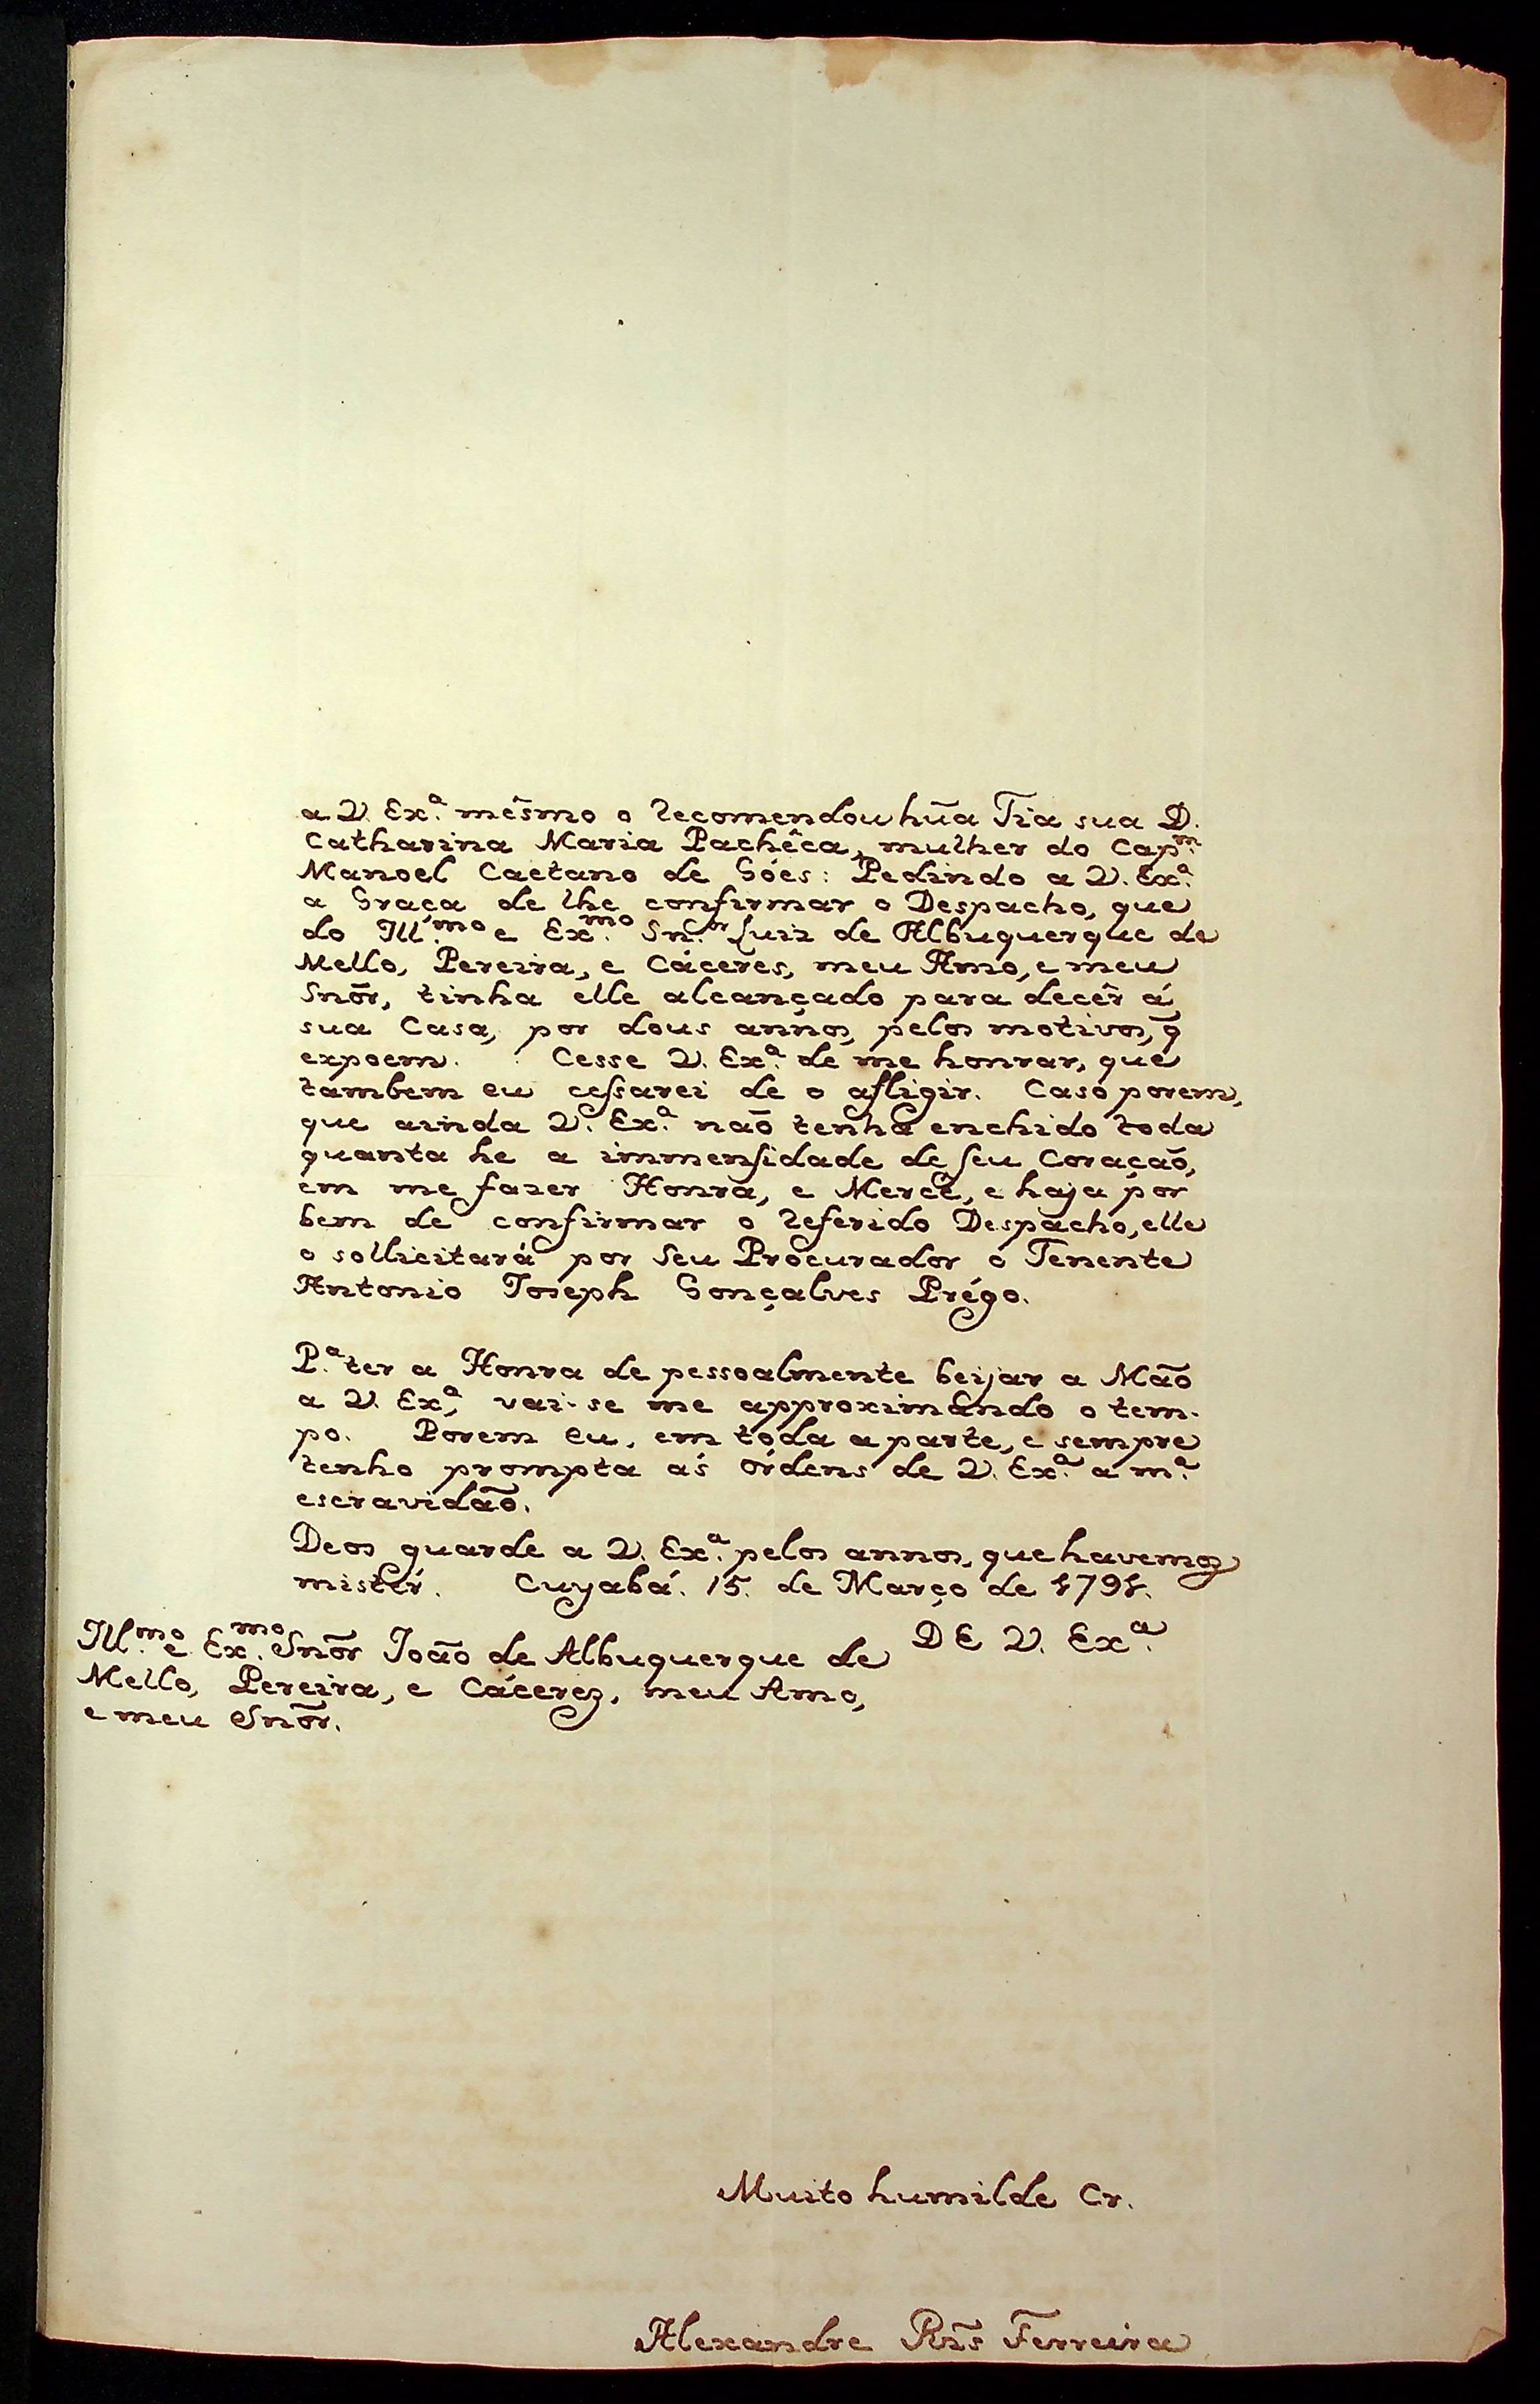 a V. Ex.ª mêsmo o recomendou hũa Tia sua D.
Catharina Maria Pachêca, mulher do Cap.m
Manoel Caetano de Góes: Pedindo a V. Ex.ª
a Graça de lhe confirmar o Despacho, que
do Ill.mo e Ex.mo Sn.or Luiz de Albuquerque de
Mello, Pereira, e Cáceres, meu Amo, e meu
Snõr, tinha elle alcançado para decêr á
sua Casa, por dous annos, pelos motivos, q̃
expoem. Cesse V. Ex.ª de me honrar, que
tambem eu cessarei de o afligir. Caso porem,
que ainda V. Ex.ª naõ tenha enchido toda
quanta he a immensidade de seu Coraçaõ,
em me fazer Honra, e Mercê, e haja por
bem de confirmar o referido Despacho, elle
o sollicitará por seu Procurador o Tenente
Antonio Joseph Gonçalves Prégo.
P.ª ter a Honra de pessoalmente beijar a Maõ
a V. Ex.ª, vai-se me approximando o tem-
po. Porem eu, em toda a parte, e sempre
tenho prompta ás órdens de V. Ex.ª a m.ª
escravidaõ.
Deos guarde a V. Ex.ª pelos annos, que havemos
mistér. Cuyabá. 15. de Março de 1791.
DE V. Ex.ª
Ill.mo e Ex.mo Snõr Joaõ de Albuquerque de
Mello, Pereira, e Cáceres, meu Amo,
e meu Snõr.
Muito humilde Cr.
Alexandre Rũs Ferreira